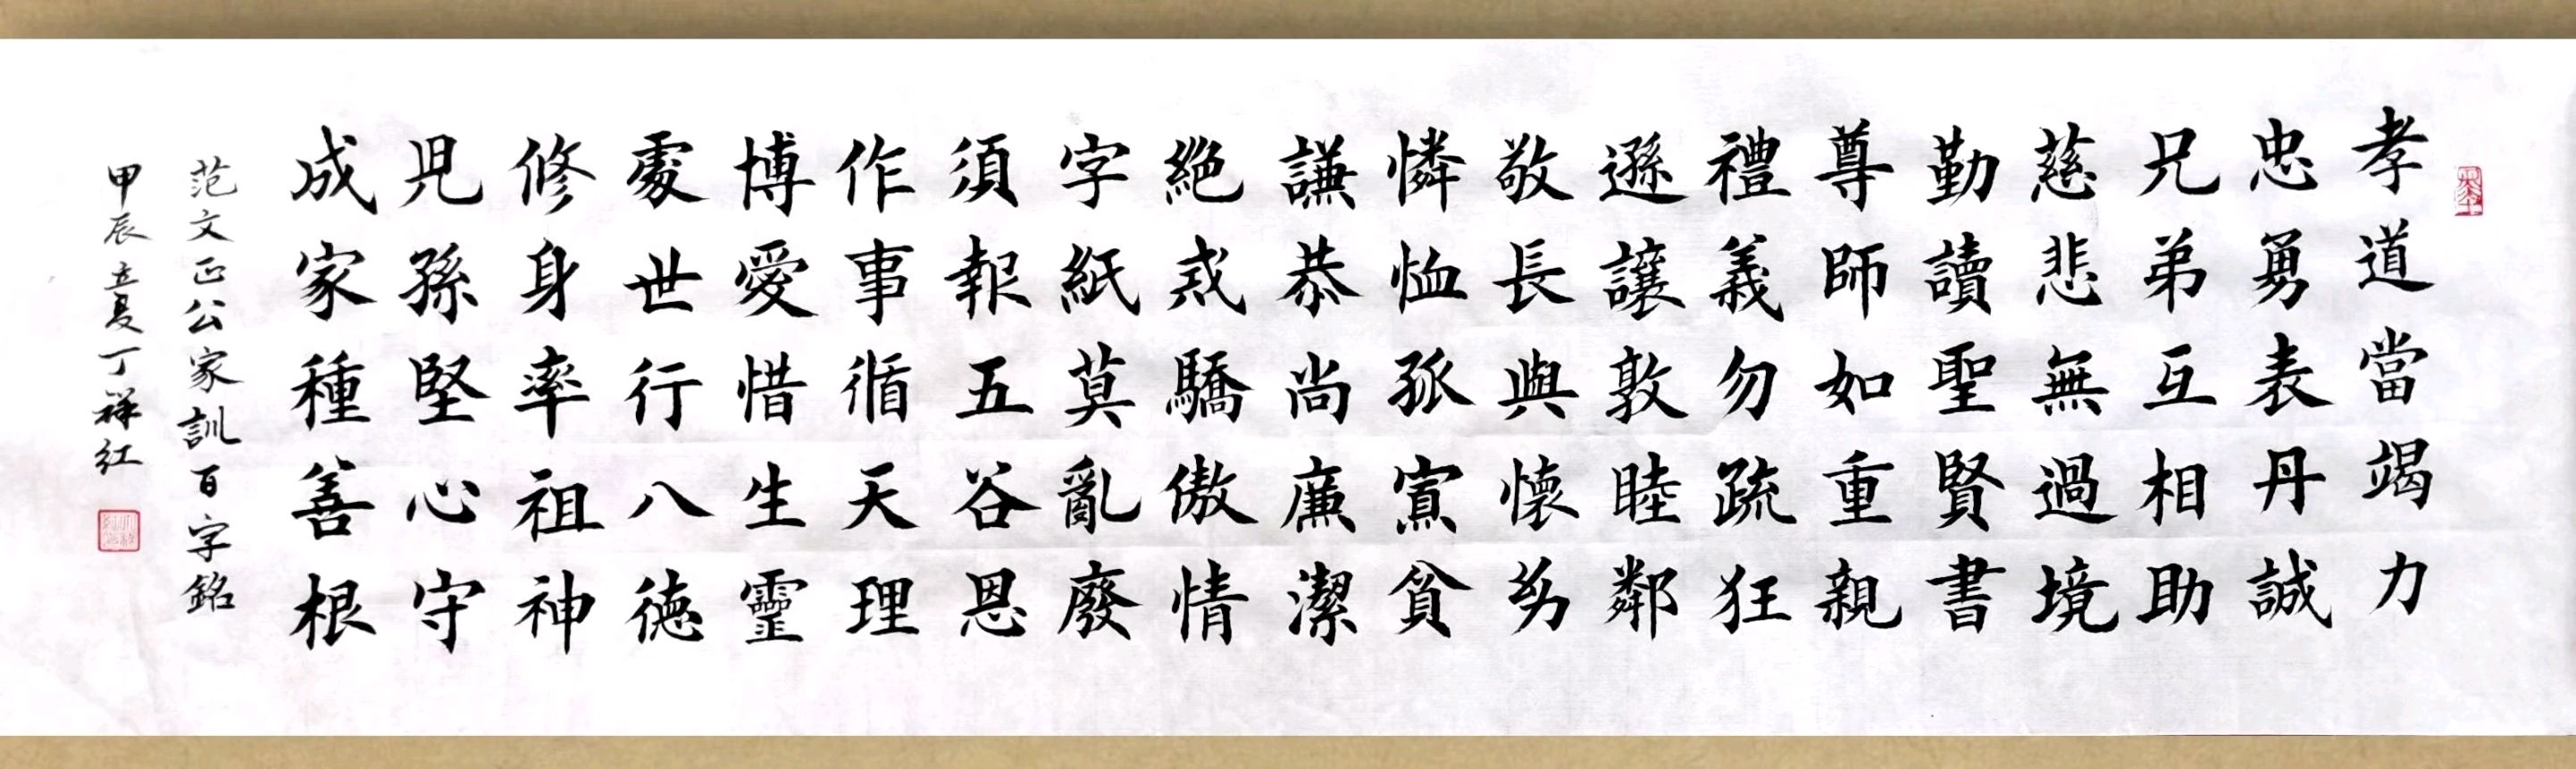 孝道當竭力
忠勇表丹誠
兄弟互相助
慈悲無過境
勤讀聖賢書
尊師如重親
禮義勿疏狂
遜讓敦睦鄰
敬長與懷幼
憐恤孤寡貧
謙恭尚廉潔
絕戒驕傲情
字紙莫亂廢
須報五谷恩
作事循天理
博愛惜生靈
處世行八德
修身率祖神
兒孫堅心守
成家種善根
范文正公家訓百字銘
甲辰立夏丁祥红